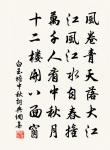 風卷青天落大江
江風江水自舂撞
萬千人看中秋月
十二樓開八面窗
白玉蟾中秋詞與綱喜